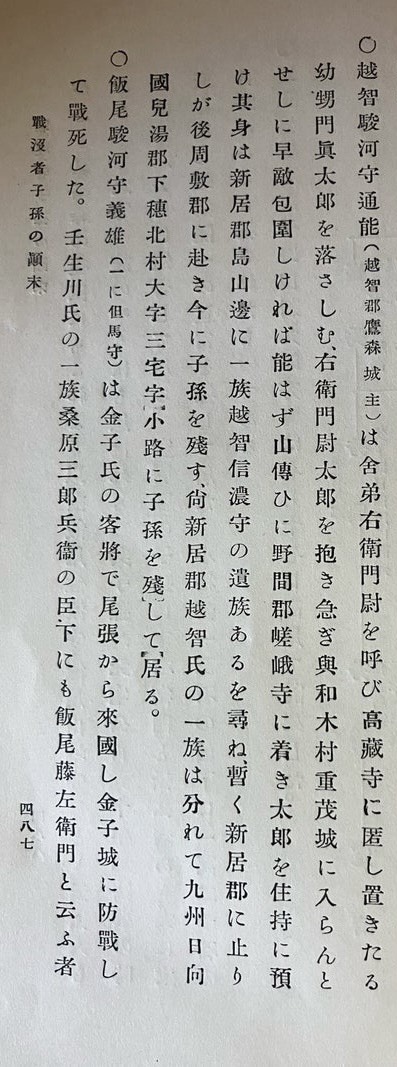 ○越智駿河守通能(越智郡鷹森城主)は舍弟右衛門尉を呼び高藏寺に匿し置きたる
幼甥門眞太郎を落さしむ、右衛門尉太郎を抱き急ぎ與和木村重茂城に入らんと
せしに早敵包圍しければ能はず山傳ひに野間郡嵯峨寺に着き太郎を住持に預
け其身は新居郡島山邊に一族越智信濃守の遺族あるを尋ね、暫く新居郡に止り
しが後周敷郡に赴き今に子孫を殘す、尙新居郡越智氏の一族は分れて九州日向
國兒湯郡下穗北村大字三宅字小路に子孫を殘して居る。
○飯尾駿河守義雄(一に但馬守)は金子氏の客將で尾張から來國し金子城に防戰し
て戰死した。壬生川氏の一族桑原三郎兵衞の臣下にも飯尾藤左衛門と云ふ者
戰沒者子孫の顚末
四八七